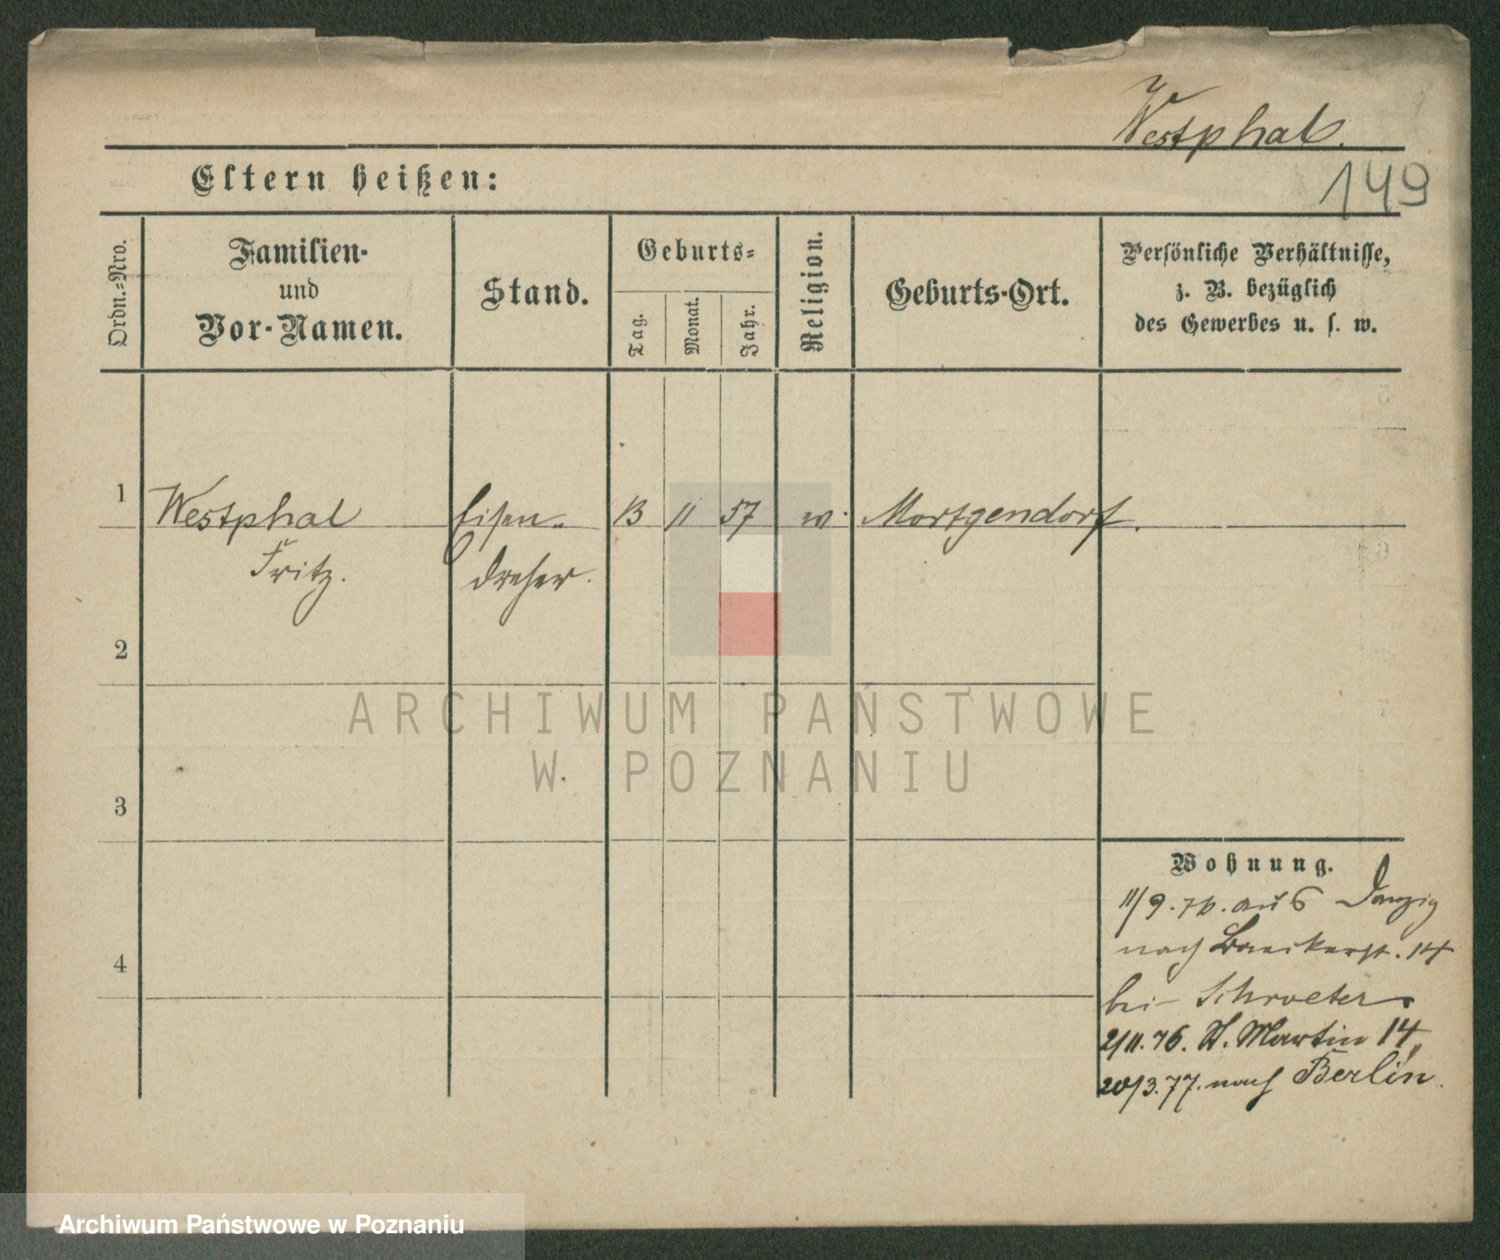 Westphal.
149
Eltern heißen:
Ordn.-Nro.
Familien-
und
Vor-Namen.
Stand.
Geburts-
Tag.
Monat.
Jahr.
Religion.
Geburts-Ort.
Persönliche Verhältnisse,
z. B. bezüglich
des Gewerbes u. s. w.
1 Westphal Eisen- 13 11 57 w. Mortgendorf.
Fritz. dreher.
2
3
4
ARCHIWUM PAŃSTWOWE
W POZNANIU
Wohnung.
11/9. 76. aus Danzig
nach 14
bei Schroeter
2/11. 76. St. Martin 14
20/3. 77. nach Berlin.
Archiwum Państwowe w Poznaniu